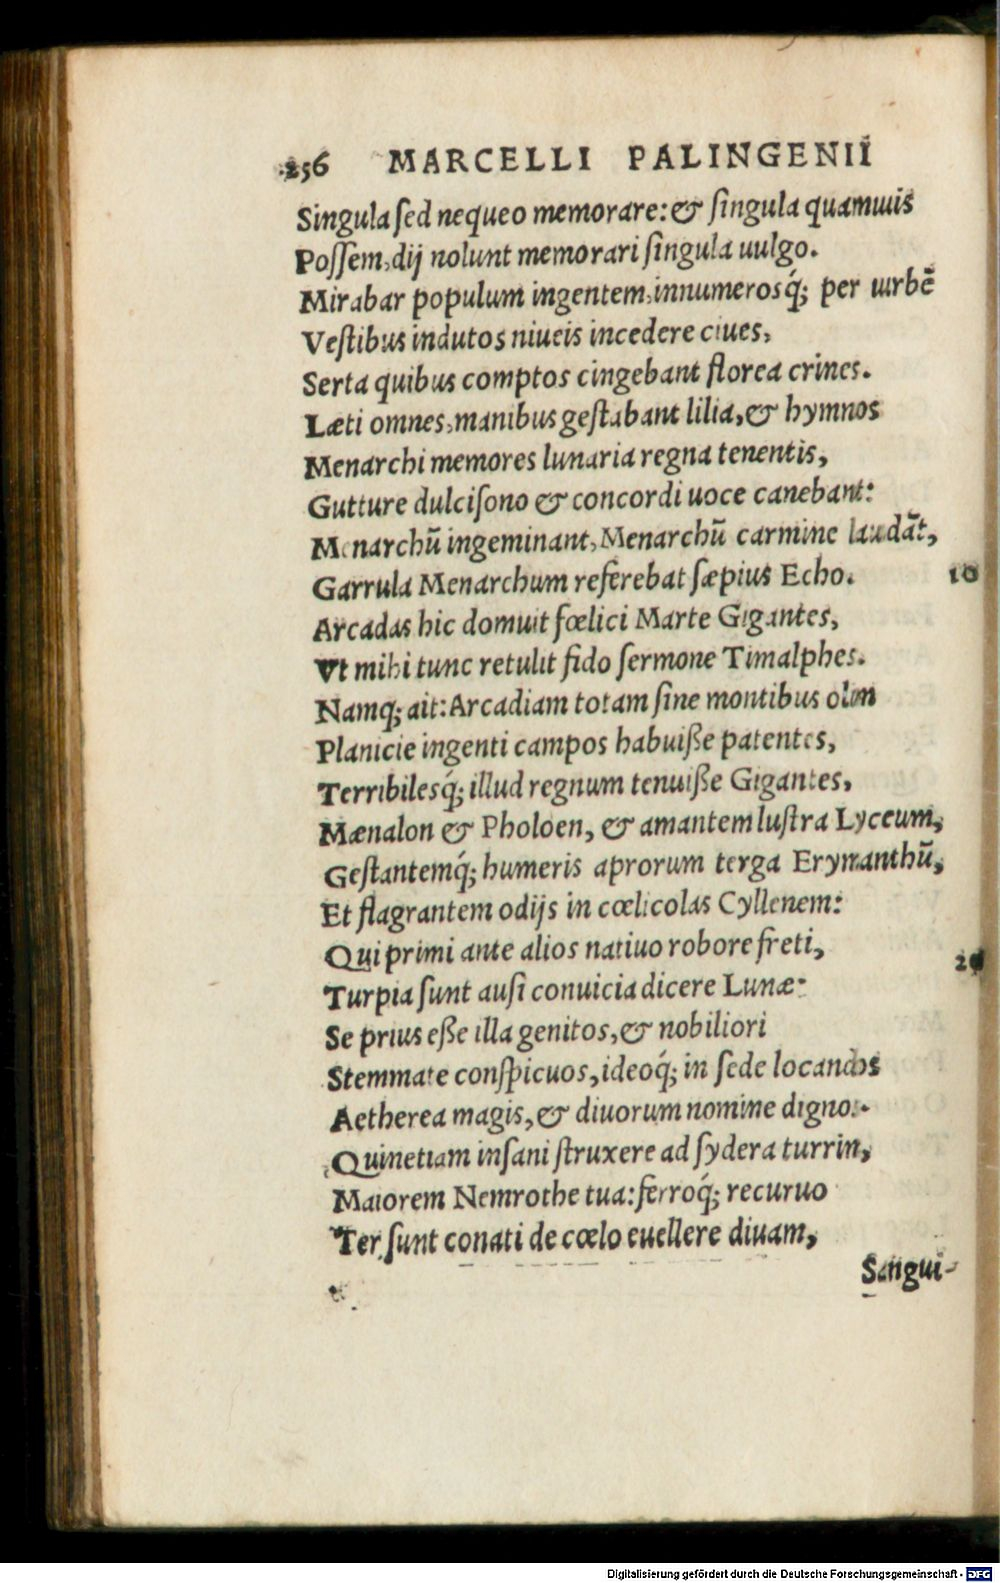 256 MARCELLI PALINGENII
Singula ſed nequeo memorare: & ſingula quamuis
Poſſem, dij nolunt memorari ſingula uulgo.
Mirabar populum ingentem, innumerosq́; per urbē
Veſtibus indutos niueis incedere ciues,
Serta quibus comptos cingebant florea crines.
Læti omnes, manibus geſtabant lilia, & hymnos
Menarchi memores lunaria regna tenentis,
Gutture dulciſono & concordi uoce canebant:
Menarchū ingeminant, Menarchū carmine laudāt,
Garrula Menarchum referebat ſæpius Echo. 10
Arcadas hic domuit fœlici Marte Gigantes,
Vt mihi tunc retulit fido ſermone Timalphes.
Namq; ait: Arcadiam totam ſine montibus olim
Planicie ingenti campos habuiße patentes,
Terribilesq́; illud regnum tenuiße Gigantes,
Mænalon & Pholoen, & amantem luſtra Lyceum,
Geſtantemq́; humeris aprorum terga Erymanthū,
Et flagrantem odijs in cœlicolas Cyllenem:
Qui primi ante alios natiuo robore freti,
Turpia ſunt auſi conuicia dicere Lunæ: 20
Se prius eße illa genitos, & nobiliori
Stemmate conſpicuos, ideoq́; in ſede locandos
Aetherea magis, & diuorum nomine digno.
Quinetiam inſani ſtruxere ad ſydera turrin,
Maiorem Nemrothe tua: ferroq́; recuruo
Ter ſunt conati de cœlo euellere diuam,
Sangui-
Digitalisierung gefördert durch die Deutsche Forschungsgemeinschaft - DFG